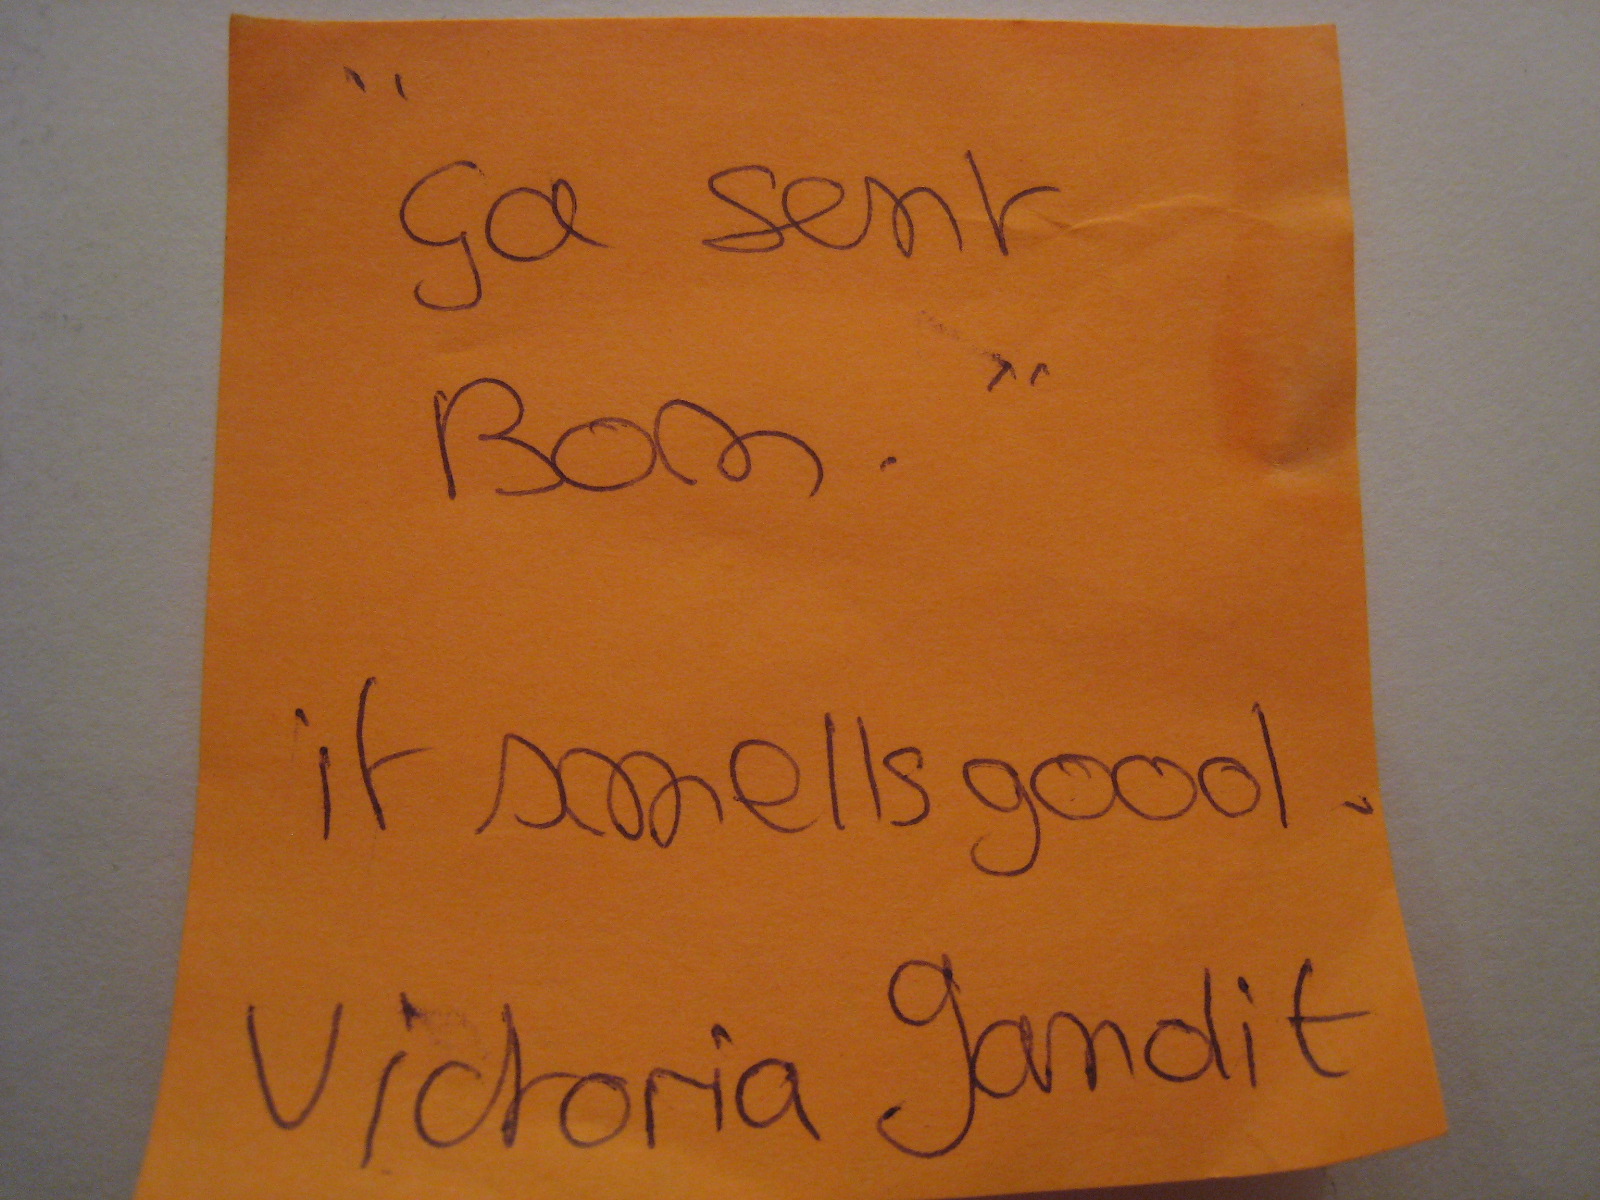 "ça sent
Bon."
it smells good.
Victoria Gandit